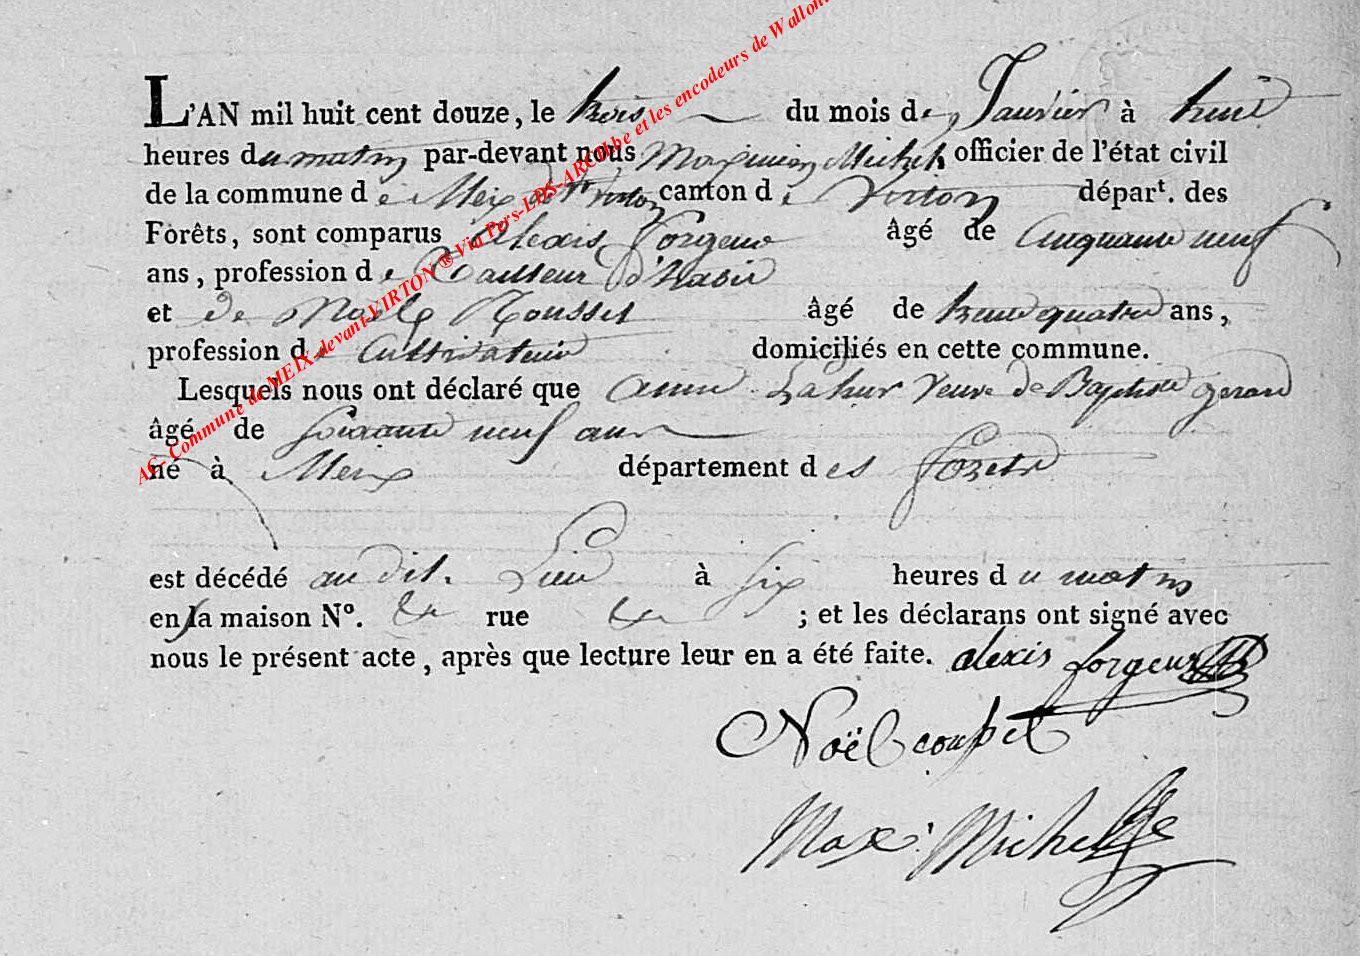 AC- Commune de MEIX-devant-VIRTON® Via Pers-LDS-ARCH.be et les encodeurs de Wallon
L'AN mil huit cent douze, le trois du mois de Janvier à huit
heures du matin par-devant nous Maximin Michel officier de l'état civil
de la commune de Meix dt Virton canton de Virton départ. des
Forêts, sont comparus Alexis Forgeux âgé de Cinquante neuf
ans, profession de Tailleur d'habit
et de Noël âgé de trente quatre ans,
profession de Cultivateur domiciliés en cette commune.
Lesquels nous ont déclaré que anne Lahur Veuve de Baptiste gerard
âgé de soixante neuf ans
né à Meix département des forêts
est décédé au dit Lieu à six heures du matin
en sa maison No. rue ; et les déclarans ont signé avec
nous le présent acte, après que lecture leur en a été faite. alexis forgeux
Noël
Max: Michel